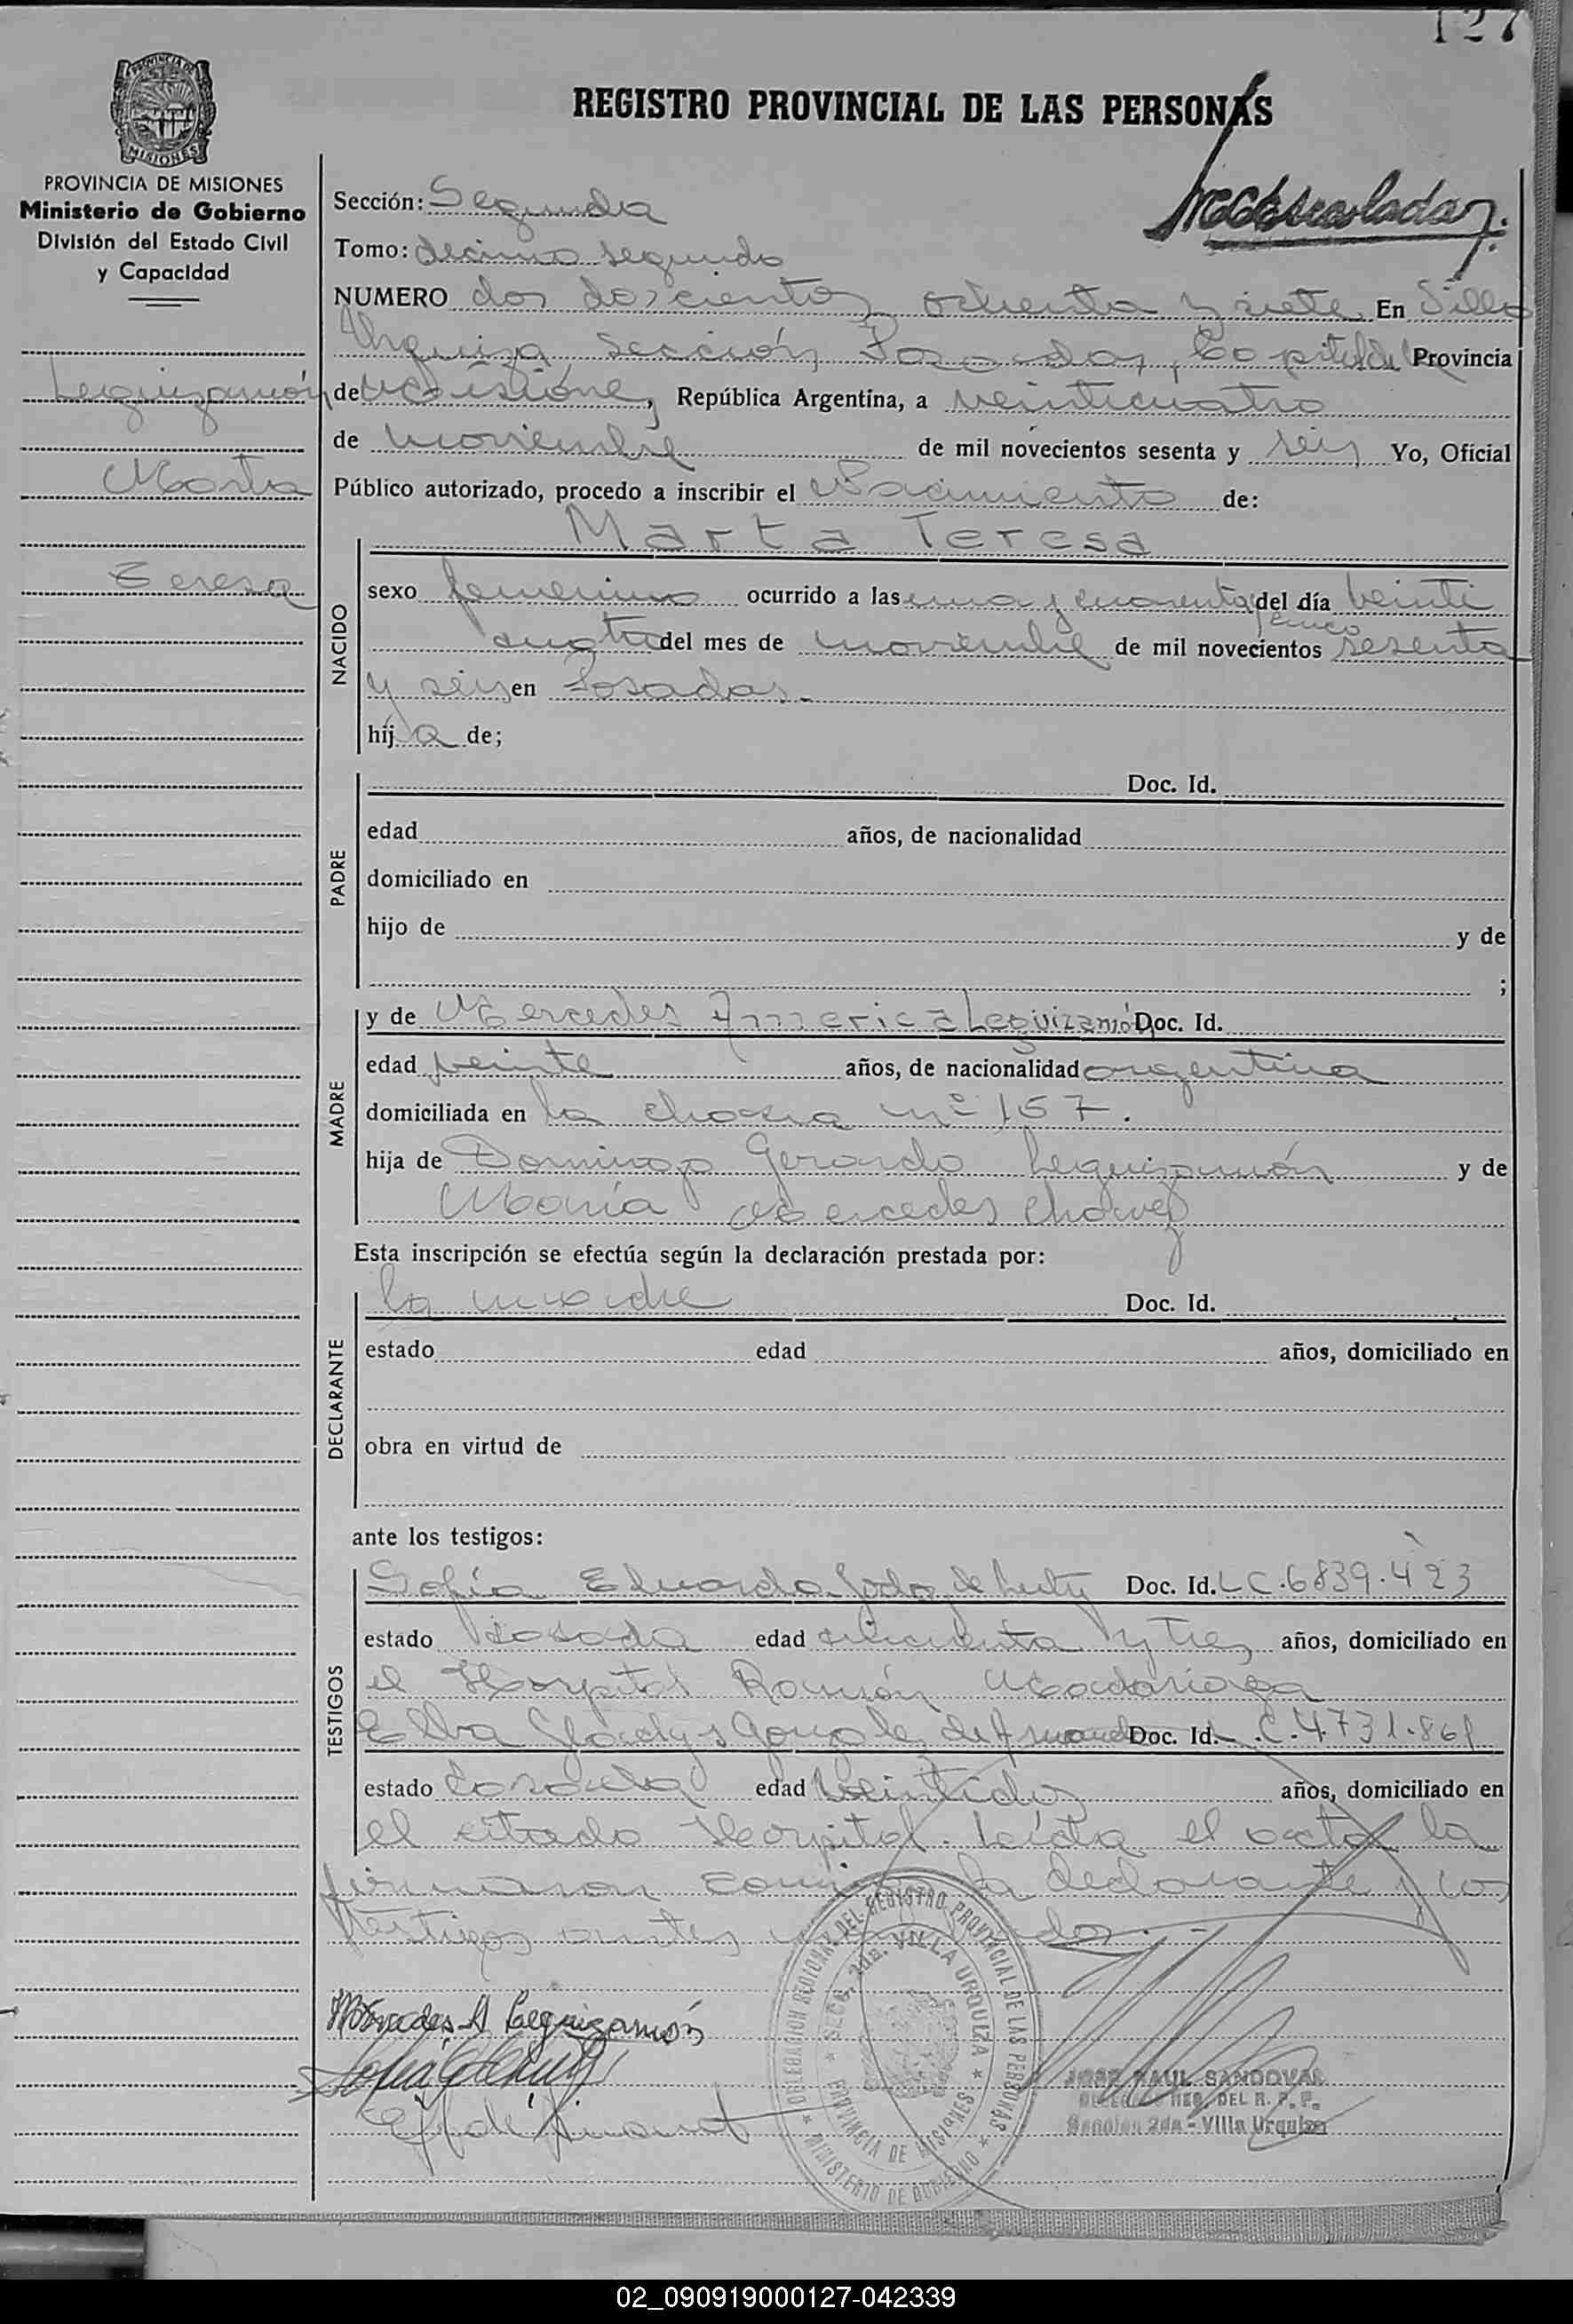 127
REGISTRO PROVINCIAL DE LAS PERSONAS
PROVINCIA DE MISIONES
Ministerio de Gobierno
División del Estado Civil
y Capacidad
Sección: Segunda
Tomo: decimo segundo
NUMERO dos doscientos ochenta y siete En Villa
Urquiza Sección Posadas, Capital de la Provincia
Leguizamón
de Misiones, República Argentina, a veinticuatro
de noviembre de mil novecientos sesenta y seis Yo, Oficial
Marta
Público autorizado, procedo a inscribir el Nacimiento de:
Marta Teresa
Teresa
NACIDO
sexo femenino ocurrido a las una y cuarenta y cinco del día veinti
cuatro del mes de noviembre de mil novecientos sesenta
y seis en Posadas.
hij a de;
PADRE
Doc. Id.
edad años, de nacionalidad
domiciliado en
hijo de y de
;
MADRE
y de Mercedes America Leguizamón Doc. Id.
edad veinte años, de nacionalidad argentina
domiciliada en la chacra nº 157.
hija de Domingo Gerardo Leguizamón y de
María Mercedes Chavez
Esta inscripción se efectúa según la declaración prestada por:
DECLARANTE
la madre Doc. Id.
estado edad años, domiciliado en
obra en virtud de
ante los testigos:
TESTIGOS
Sofía Eduarda de Doc. Id. LC.6839.423
estado casada edad cincuenta y tres años, domiciliado en
el Hospital Ramón Madariaga
Elba Gladys Gonzalez de Doc. Id. L.C.4.731.861
estado casada edad veintidos años, domiciliado en
el citado Hospital. Leída el acta la
firmaron conmigo la declarante y los
testigos antes
Mercedes A Leguizamón
DELEGACION REGIONAL DEL REGISTRO PROVINCIAL DE LAS PERSONAS
SECC. 2da. VILLA URQUIZA
PROVINCIA DE MISIONES
MINISTERIO DE GOBIERNO
JOSE RAUL SANDOVAL
DEL R. P. P.
Sección 2da - Villa Urquiza
02_090919000127-042339